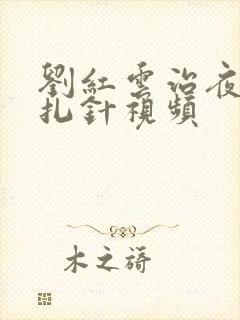 劉紅雲治夜
扎針視頻
木之蒔